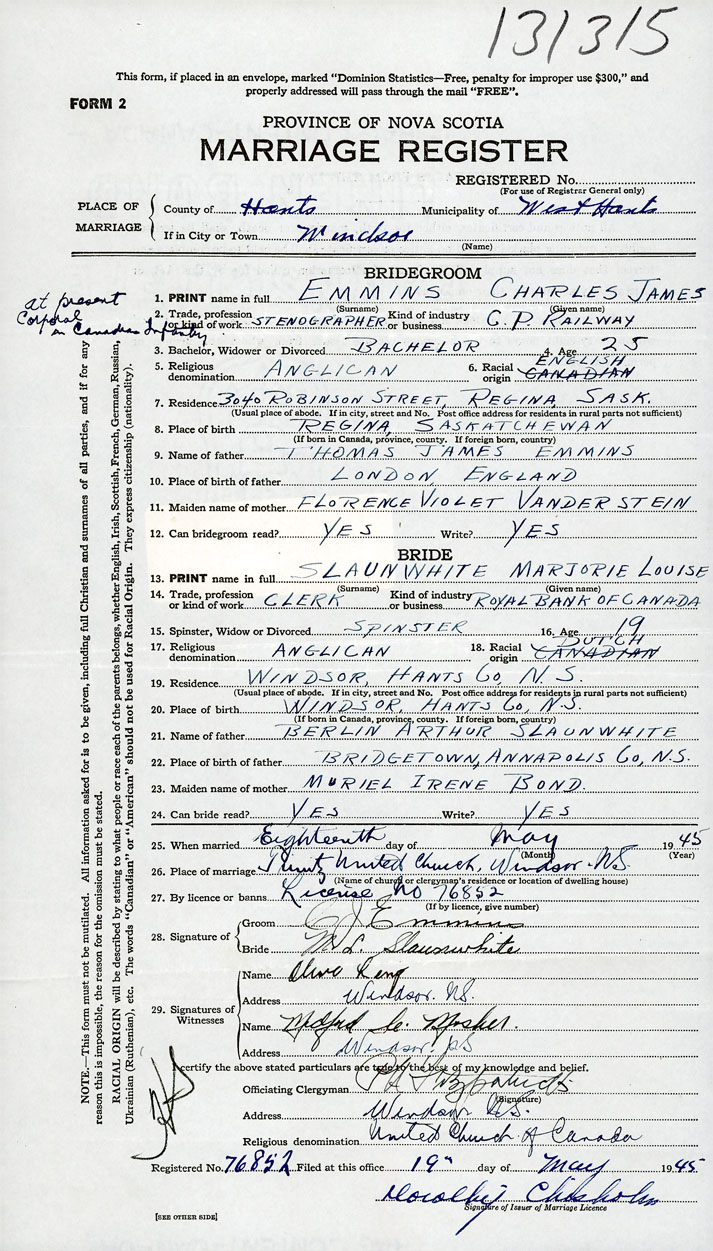 131315
This form, if placed in an envelope, marked "Dominion Statistics—Free, penalty for improper use $300," and
properly addressed will pass through the mail "FREE".
FORM 2
PROVINCE OF NOVA SCOTIA
MARRIAGE REGISTER
REGISTERED No.
(For use of Registrar General only)
PLACE OF MARRIAGE
County of Hants Municipality of West Hants
If in City or Town Windsor
(Name)
BRIDEGROOM
at present
Corporal
in Canadian Infantry
1. PRINT name in full EMMINS CHARLES JAMES
(Surname) (Given name)
2. Trade, profession or kind of work STENOGRAPHER Kind of industry or business C.P. RAILWAY
3. Bachelor, Widower or Divorced BACHELOR 4. Age 25
5. Religious denomination ANGLICAN 6. Racial origin CANADIAN ENGLISH
7. Residence 3040 ROBINSON STREET, REGINA, SASK.
(Usual place of abode. If in city, street and No. Post office address for residents in rural parts not sufficient)
8. Place of birth REGINA, SASKATCHEWAN
(If born in Canada, province, county. If foreign born, country)
9. Name of father THOMAS JAMES EMMINS
10. Place of birth of father LONDON, ENGLAND
11. Maiden name of mother FLORENCE VIOLET VANDERSTEIN
12. Can bridegroom read? YES Write? YES
BRIDE
13. PRINT name in full SLAUNWHITE MARJORIE LOUISE
(Surname) (Given name)
14. Trade, profession or kind of work CLERK Kind of industry or business ROYAL BANK OF CANADA
15. Spinster, Widow or Divorced SPINSTER 16. Age 19
17. Religious denomination ANGLICAN 18. Racial origin CANADIAN DUTCH
19. Residence WINDSOR, HANTS CO, N.S.
(Usual place of abode. If in city, street and No. Post office address for residents in rural parts not sufficient)
20. Place of birth WINDSOR, HANTS CO, N.S.
(If born in Canada, province, county. If foreign born, country)
21. Name of father BERLIN ARTHUR SLAUNWHITE
22. Place of birth of father BRIDGETOWN, ANNAPOLIS CO, N.S.
23. Maiden name of mother MURIEL IRENE BOND.
24. Can bride read? YES Write? YES
25. When married Eighteenth day of May 1945
(Month) (Year)
26. Place of marriage Trinity United Church, Windsor. N.S.
(Name of church or clergyman's residence or location of dwelling house)
27. By licence or banns License No 76852
(If by licence, give number)
28. Signature of
Groom C J Emmins
Bride M. L. Slaunwhite
29. Signatures of Witnesses
Name King
Address Windsor. N.S.
Name Mosher.
Address Windsor. N.S
I certify the above stated particulars are true to the best of my knowledge and belief.
Officiating Clergyman Fitzpatrick
(Signature)
Address Windsor N.S.
Religious denomination United Church of Canada
Registered No. 76852 Filed at this office 19th day of May 1945
Dorothy Chisholm
Signature of Issuer of Marriage Licence
[SEE OTHER SIDE]
NOTE.—This form must not be mutilated. All information asked for is to be given, including full Christian and surnames of all parties, and if for any
reason this is impossible, the reason for the omission must be stated.
RACIAL ORIGIN will be described by stating to what people or race each of the parents belongs, whether English, Irish, Scottish, French, German, Russian,
Ukrainian (Ruthenian), etc. The words "Canadian" or "American" should not be used for Racial Origin. They express citizenship (nationality).